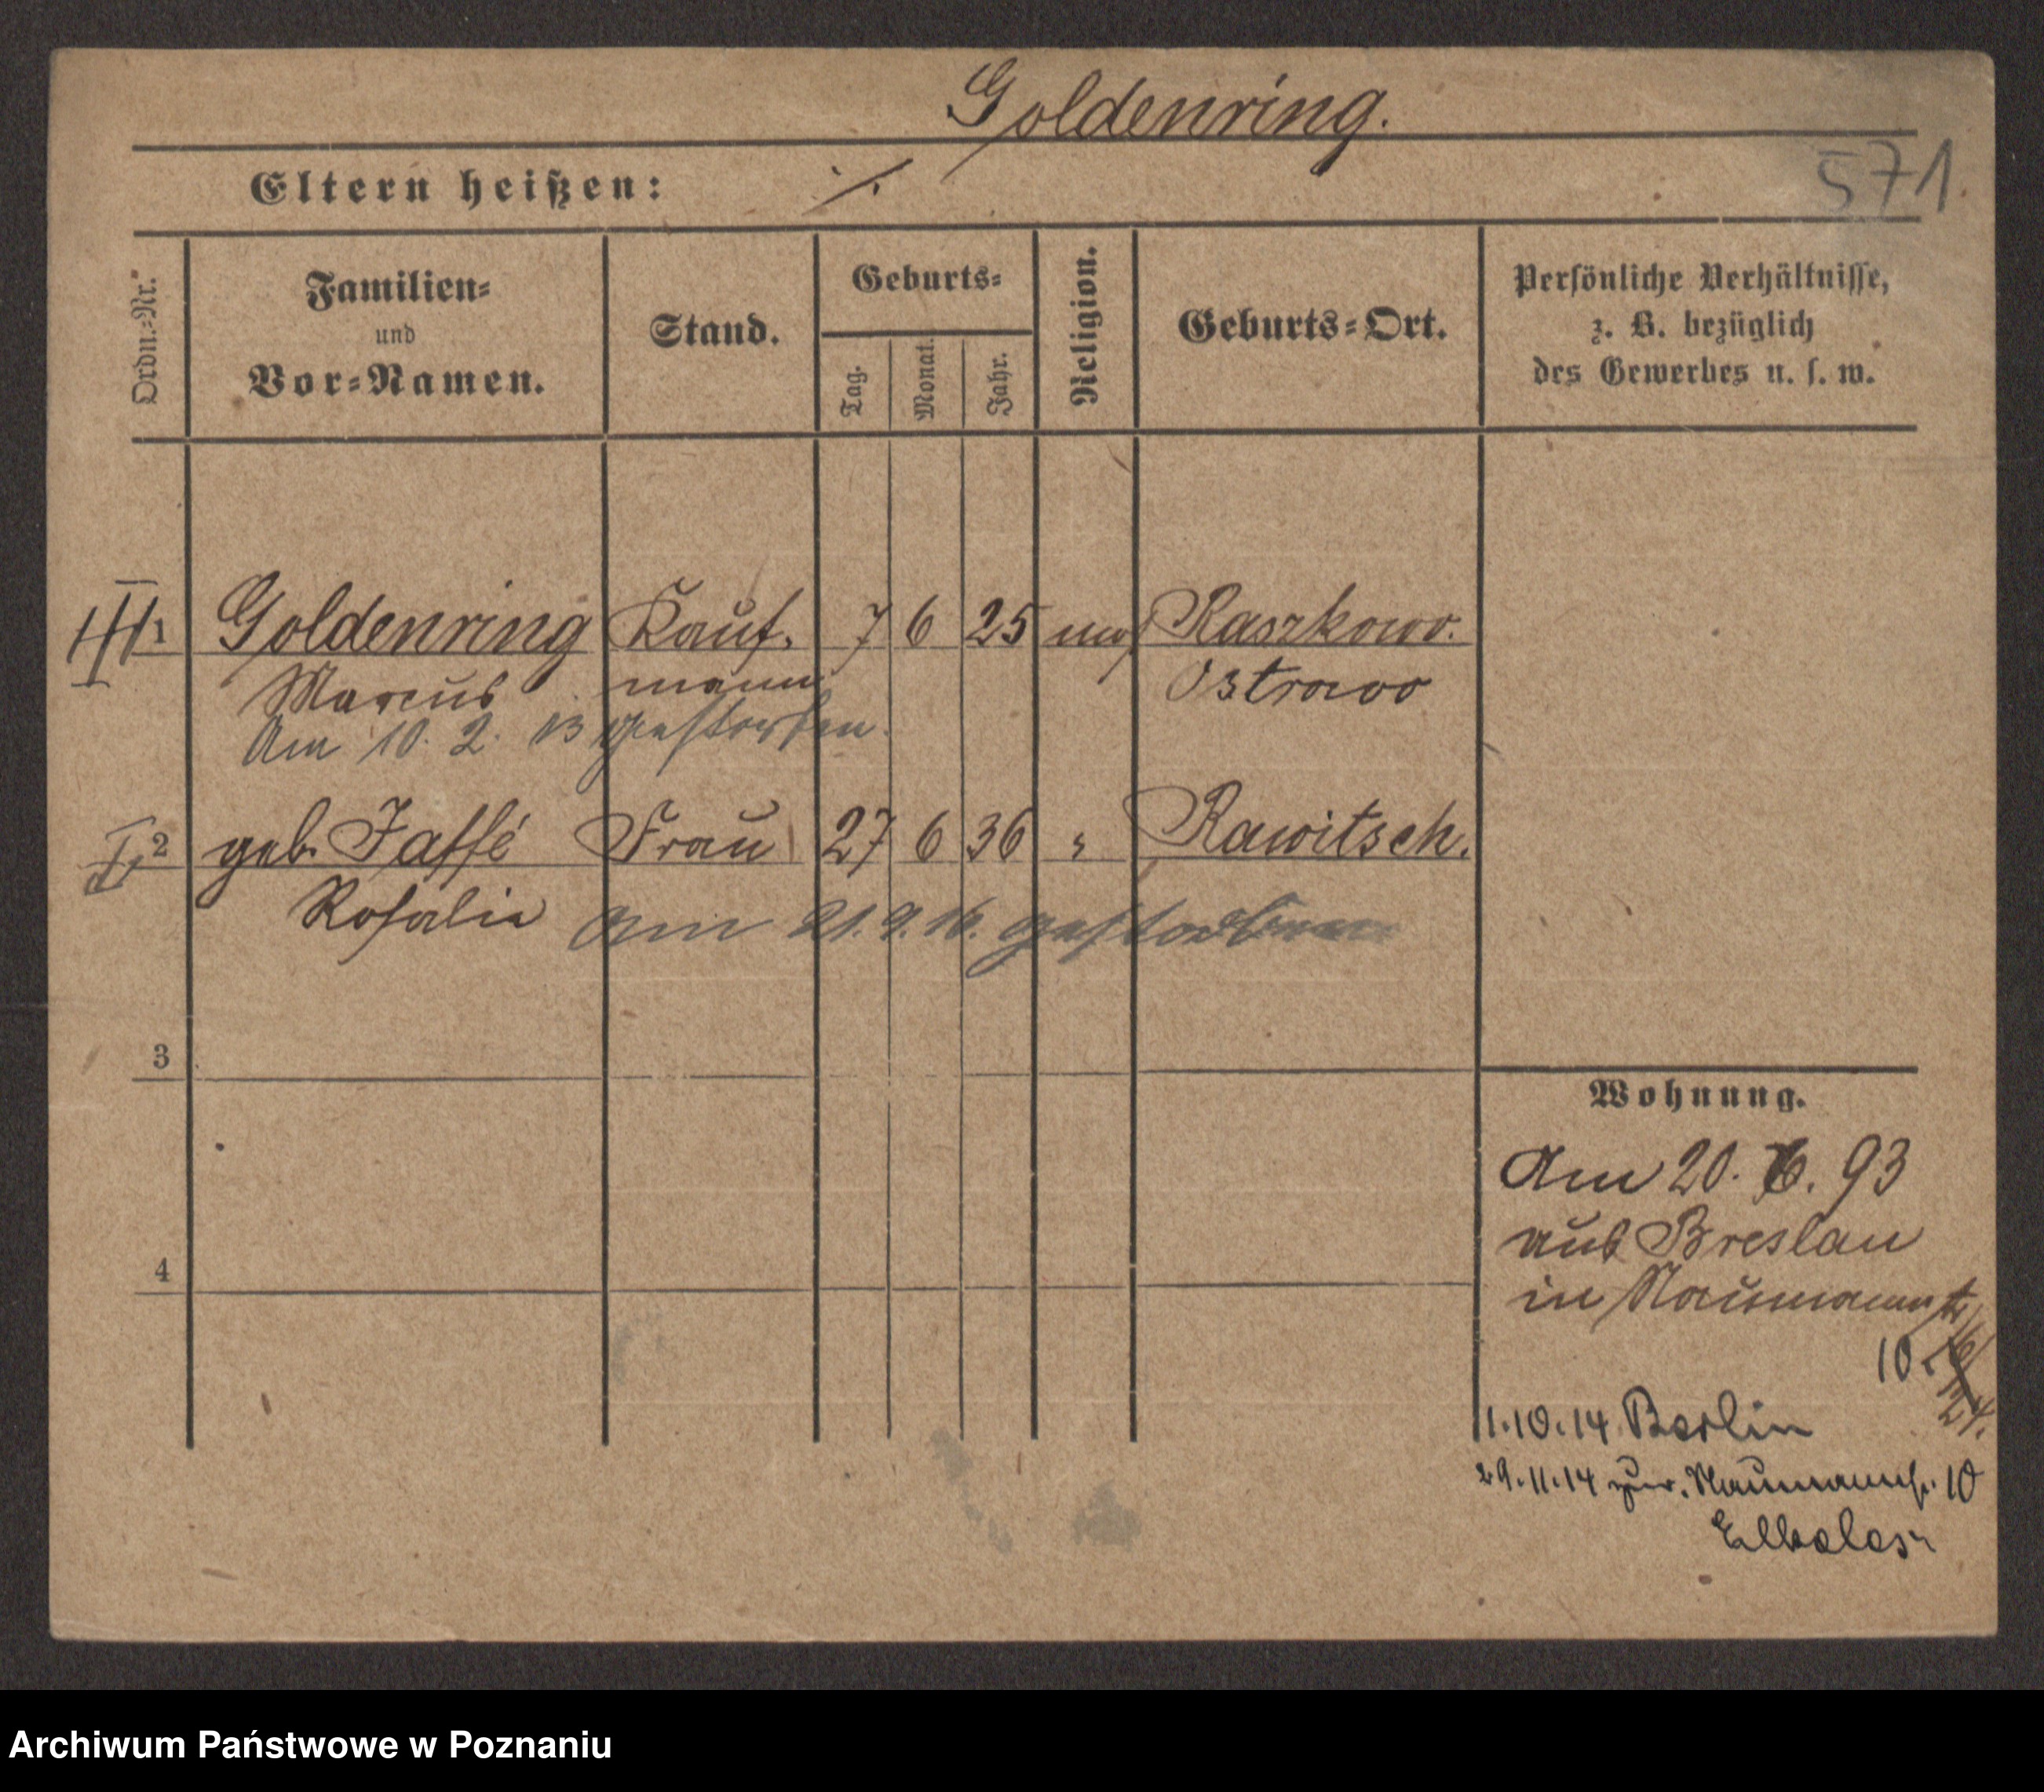 Goldenring.
571.
Eltern heißen: ·/.
Ordn.-Nr.
Familien-
und
Vor-Namen.
Stand.
Geburts-
Tag.
Monat.
Jahr.
Religion.
Geburts-Ort.
Persönliche Verhältnisse,
z. B. bezüglich
des Gewerbes u. s. w.
1 Goldenring Kauf- 7 6 25 mos Raszkowo.
Marcus mann Ostrowo
Am 10. 2. 13 gestorben.
2 geb. Jaffé Frau 27 6 36 " Rawitsch.
Rosalie Am 21. 9. 16. gestorben
3
4
Wohnung.
Am 20. 6. 93
aus Breslau
in Naumannstr
10
1.10.14 Berlin
29.11.14 zur. Naumannstr. 10
Archiwum Państwowe w Poznaniu